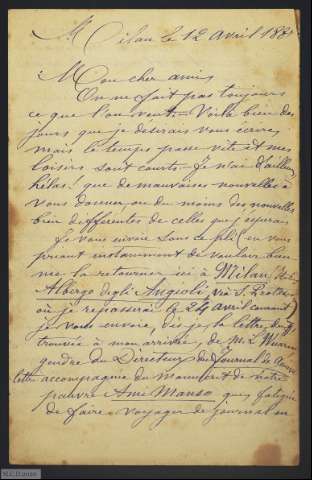 Milan le 12 Avril 188
Mon cher ami
On ne fait pas toujours
ce que l'on veut. Voilà bien des
jours que je désirais vous écrire,
mais le temps passe vite et mes
loisirs sont courts. Je n'ai d'ailleurs
hélas! que de mauvaises nouvelles à
vous donner, ou du moins des nouvelles
bien différentes de celles que j'espérais
Je vous envoie sous ce pli, en vous
priant instamment de vouloir bien
me la retourner ici à Milan,
Albergo degli Angioli, via S.
où je repasserai le 24 avril courant
je vous envoie, dis-je, la lettre,
trouvée à mon arrivée, de M. L.
gendre du Directeur du Journal de
lettre accompagnée du manuscrit de notre
pauvre Ami Manso, que, fatigué
de faire voyager de journal en